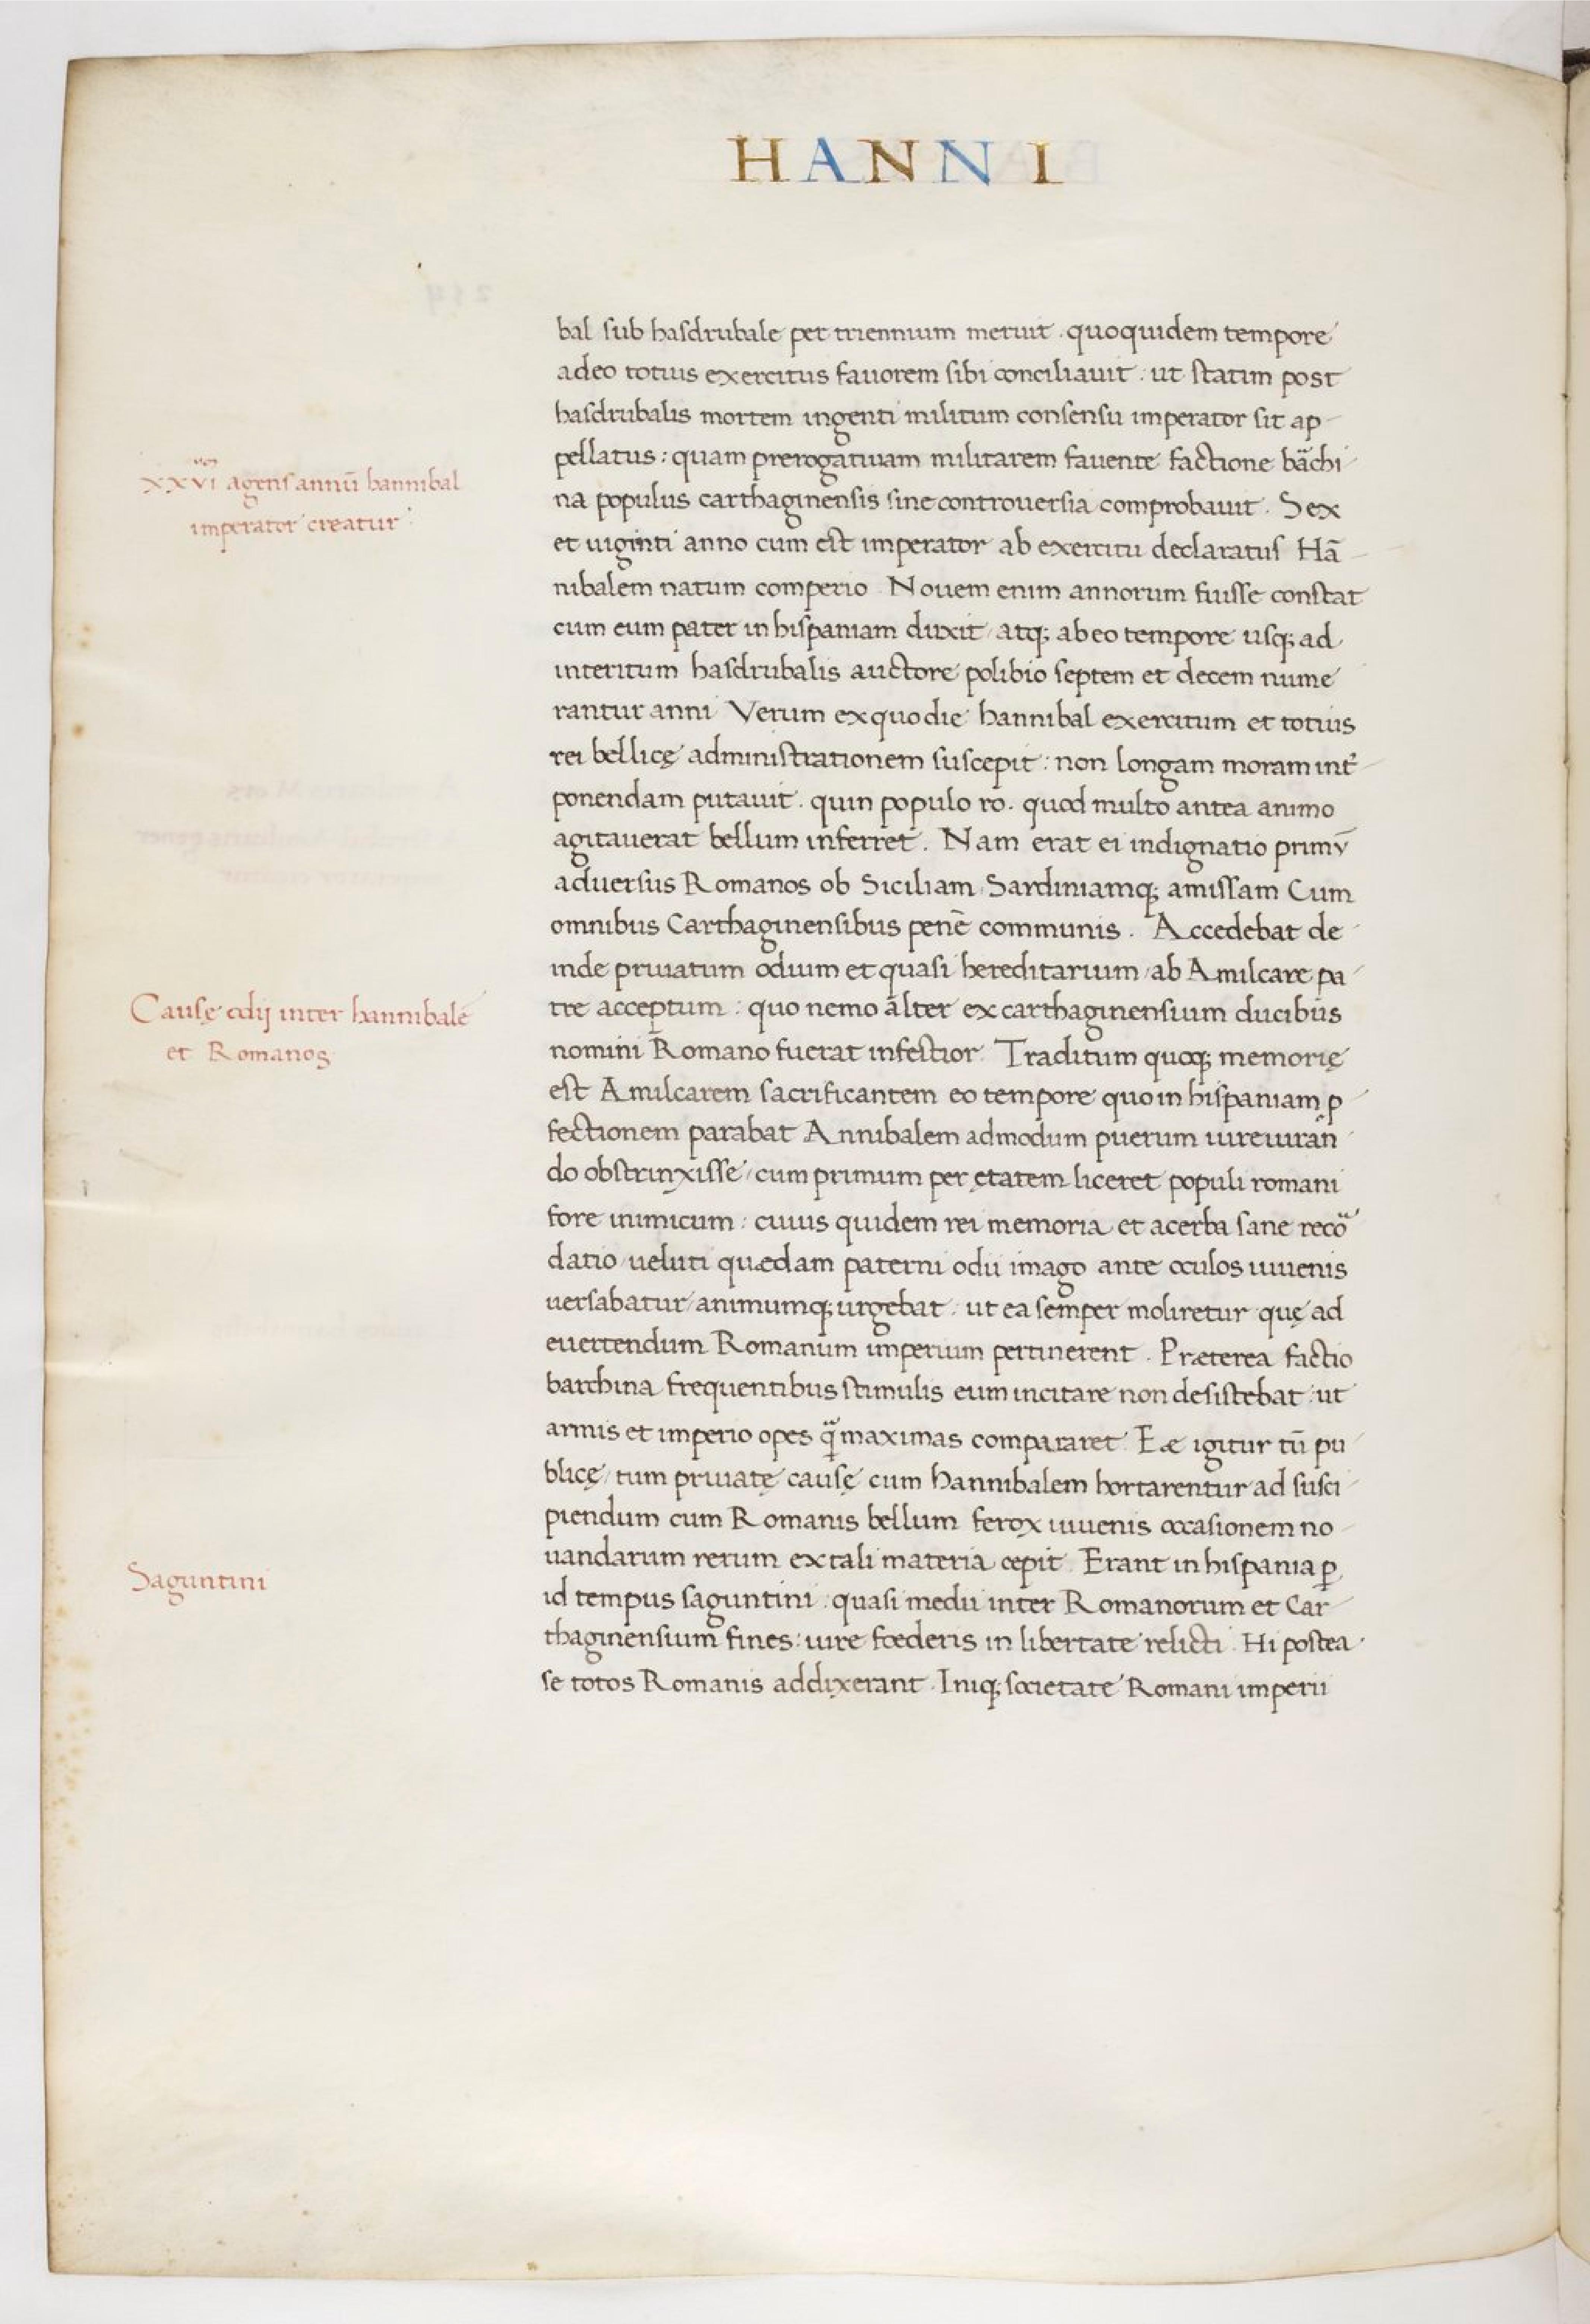 HANNI
bal sub hasdrubale per triennium meruit . quoquidem tempore
adeo totius exercitus fauorem sibi conciliauit : ut statim post
hasdrubalis mortem ingenti militum consensu imperator sit ap-
pellatus : quam prerogatiuam militarem fauente factione ba͛chi-
na populus carthaginensis sine controuersia comprobauit . Sex
et uiginti anno cum est imperator ab exercitu declaratus Hā-
nibalem natum comperio . Nouem enim annorum fuisse constat
cum eum pater in hispaniam duxit / atq; ab eo tempore usq; ad
interitum hasdrubalis auctore polibio septem et decem nume
rantur anni Verum ex quo die hannibal exercitum et totius
rei bellicę administrationem suscepit : non longam moram int͛-
ponendam putauit . quin populo ro. quod multo antea animo
agitauerat bellum inferret . Nam erat ei indignatio primv̄
aduersus Romanos ob Siciliam Sardiniamq; amissam Cum
omnibus Carthaginensibus penē communis . Accedebat de-
inde priuatum odium et quasi hereditarium / ab Amilcare pa-
tre acceptum : quo nemo alter ex carthaginensium ducibus
nomini Romano fuerat infestior . Traditum quoq; memorię
est Amilcarem sacrificantem eo tempore quo in hispaniam ꝓ-
fectionem parabat Annibalem admodum puerum iureiuran-
do obstrinxisse / cum primum per ętatem liceret populi romani
fore inimicum : cuius quidem rei memoria et acerba sane reco͛-
datio / ueluti quædam paterni odii imago ante oculos iuuenis
uersabatur / animumq; urgebat . ut ea semper moliretur quę ad
euertendum Romanum imperium pertinerent . Præterea factio
barchina frequentibus stimulis eum incitare non desistebat : ut
armis et imperio opes qͣ̃ maximas compararet . Eæ igitur tū pu-
blicę / tum priuatę causę cum hannibalem hortarentur ad susci-
piendum cum Romanis bellum ferox iuuenis occasionem no-
uandarum rerum ex tali materia cepit . Erant in hispania ꝑ
id tempus saguntini . quasi medii inter Romanorum et Car-
thaginensium fines : iure fœderis in libertate relicti . Hi postea
se totos Romanis addixerant . Iniq; societate Romani imperii
XXVI agens annū hannibal
imperator creatur .
Causę odij inter hannibalē
et Romanos
Saguntini